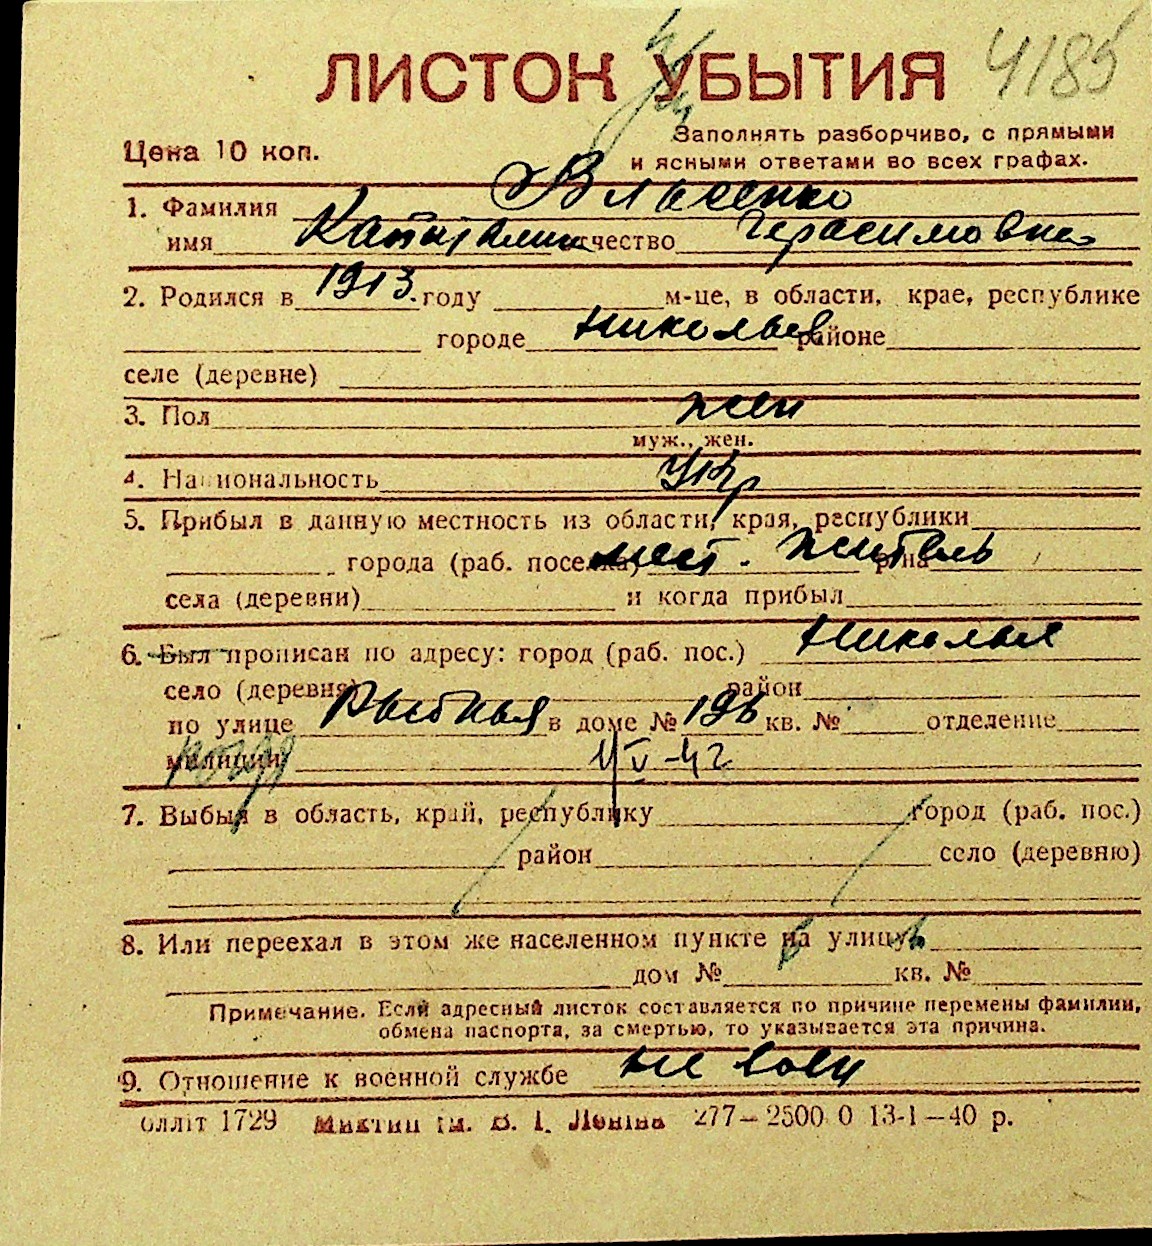 ЛИСТОК УБЫТИЯ 4185
Цена 10 коп.
Заполнять разборчиво, с прямыми
и ясными ответами во всех графах.
1. Фамилия Власенко
имя Капитолина отчество Герасимовна
2. Родился в 1913. году м-це, в области, крае, республике
городе Николаев районе
селе (деревне)
3. Пол жен
муж., жен.
4. Национальность укр
5. Прибыл в данную местность из области, края, республики
города (раб. поселка) мест. житель р-на
села (деревни) и когда прибыл
6. Был прописан по адресу: город (раб. пос.) Николаев
село (деревня) район
по улице Рыбная в доме № 196 кв. № отделение
милиции 1/V-42
7. Выбыл в область, край, республику город (раб. пос.)
район село (деревню)
8. Или переехал в этом же населенном пункте на улицу
дом № кв. №
Примечание. Если адресный листок составляется по причине перемены фамилии,
обмена паспорта, за смертью, то указывается эта причина.
9. Отношение к военной службе не воен
Оллiт 1729 iм. В. I. Ленiна 277—2500 0 13-1—40 р.